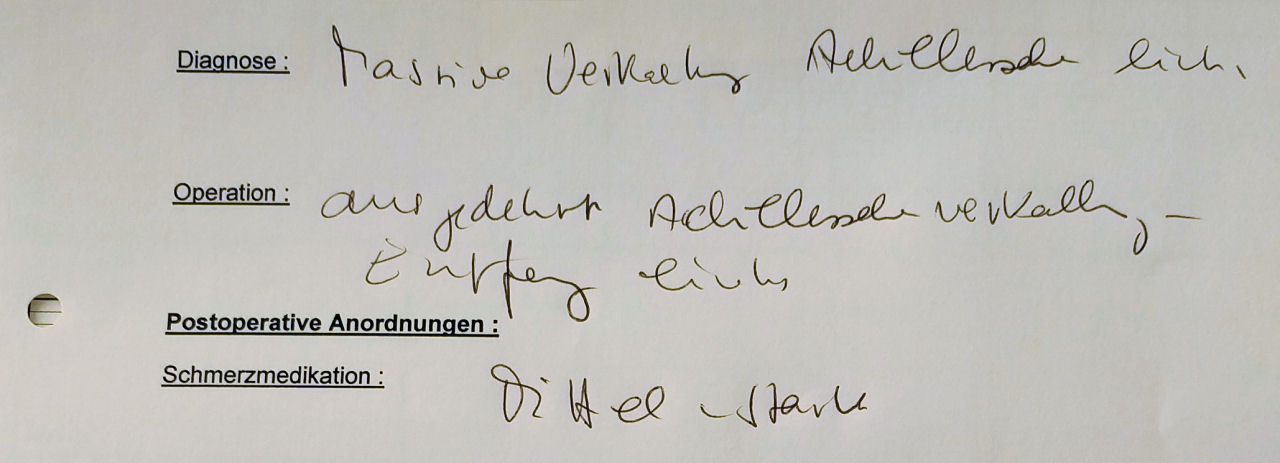 Diagnose : Massive Verkalkung Achillessehne links
Operation : ausgedehnte Achillessehnenverkalkung -
Entfernung links
Postoperative Anordnungen :
Schmerzmedikation : Mittel - stark